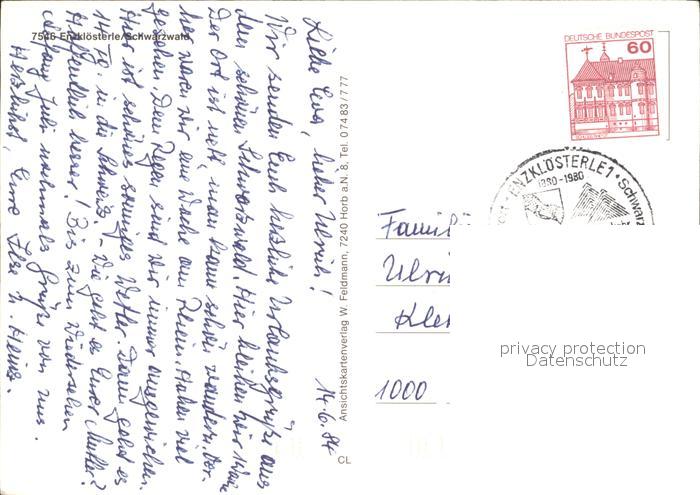 7546 Enzklösterle/Schwarzwald
14.6.84
Liebe Eva, lieber Ulrich!
Wir senden Euch herzliche Urlaubsgrüße aus
dem schönen Schwarzwald. Hier bleiben wir 1 Woche
Der Ort ist nett, man kann schön wandern. Vor-
her waren wir eine Woche am Rhein. Haben viel
gesehen. Dem Regen sind wir immer ausgewichen.
Hier ist schönes sonniges Wetter. Dann geht es
in die Schweiz. - Wie geht es Eurer Mutter?
Hoffentlich besser! Bis zum Wiedersehen
Anfang Juli nochmals Grüße von uns.
Herzlichst, Eure Ilse u. Heinz.
Ansichtskartenverlag W. Feldmann, 7240 Horb a.N. 8, Tel. 07483/777
CL
DEUTSCHE BUNDESPOST
60
ENZKLÖSTERLE 1 · Schwarz
1880-1980
Famil
Ulri
Kle
1000
privacy protection
Datenschutz